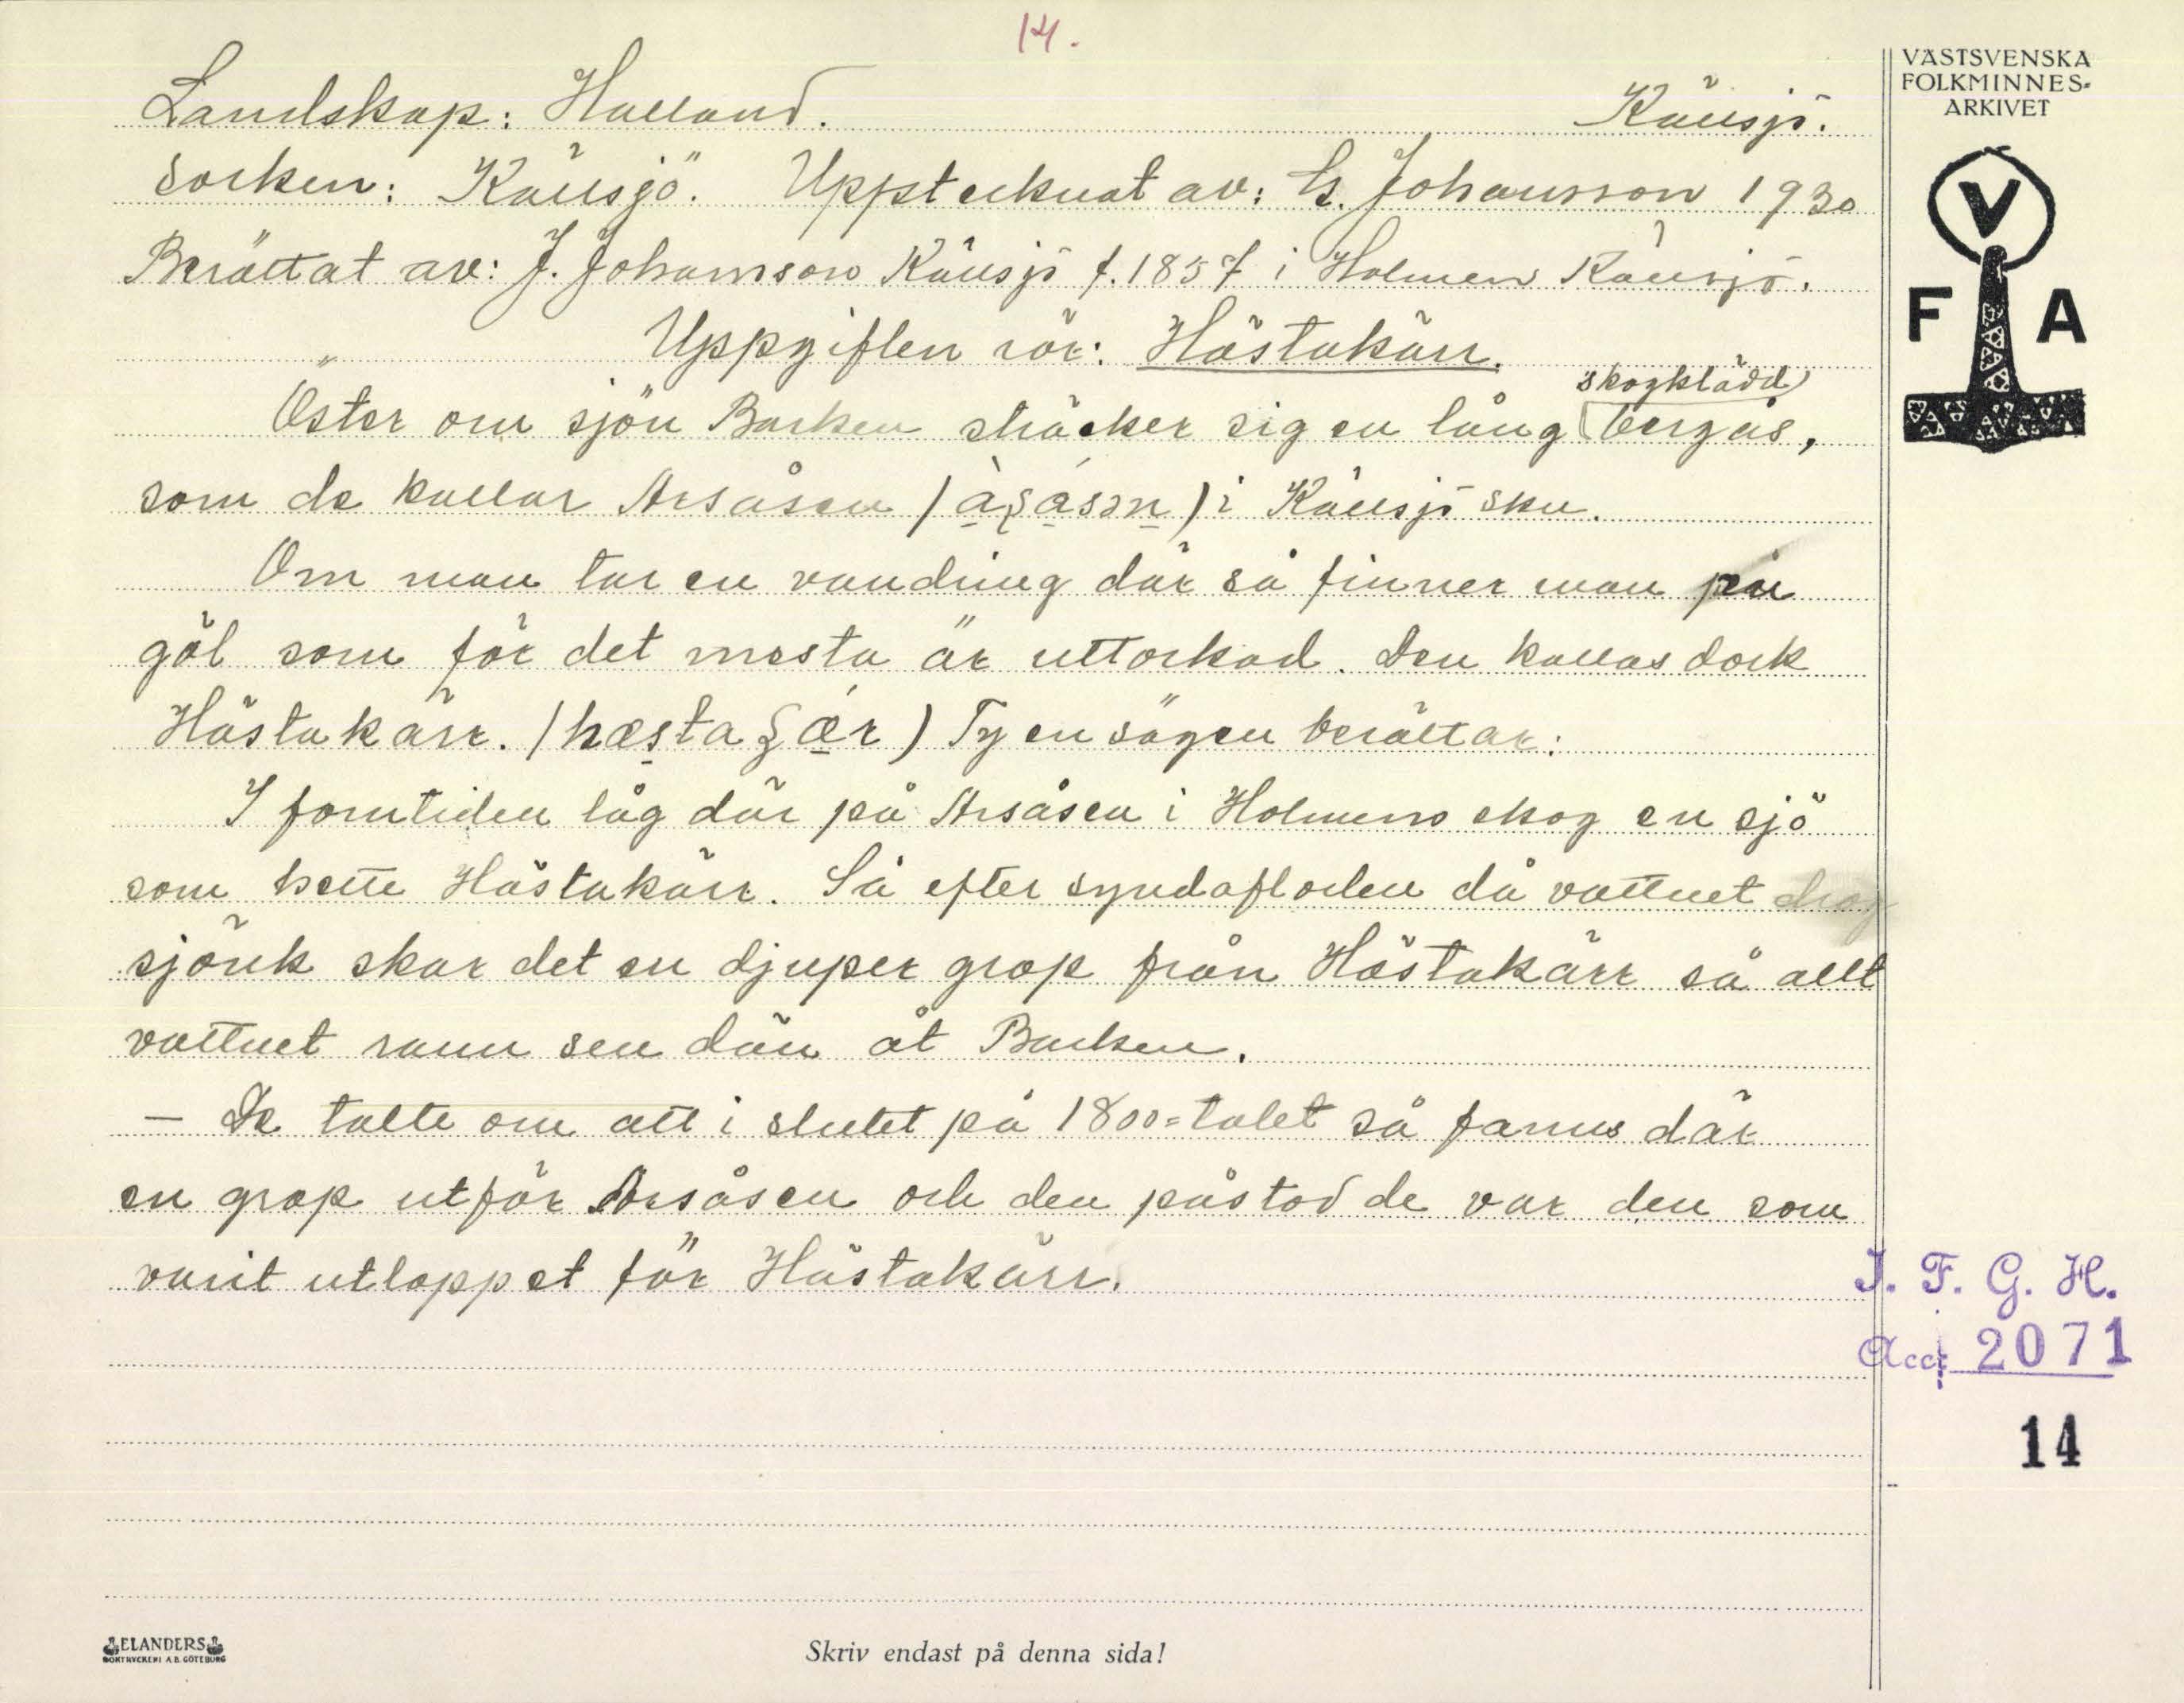 14.
VÄSTSVENSKA
FOLKMINNES-
ARKIVET
Landskap: Halland. Källsjö.
Socken: Källsjö. Upptecknat av: G. Johansson 1930
Berättat av: J. Johansson Källsjö f. 1857 i Holmen Källsjö.
V
F A
Uppgiften rör: Hästakärr.
skogklädd
Öster om sjön Barken sträcker sig en lång bergås,
som de kallar Arsåsen i Källsjö skn.
Om man tar en vandring där så finner man en
göl som för det mesta är uttorkad. Den kallas dock
Hästakärr. Ty en sägen berättar:
I forntiden låg där på Arsåsen i Holmens skog en sjö
som hette Hästakärr. Så efter syndafloden då vattnet drog
sjönk skar det en djuper grop från Hästakärr så allt
vattnet rann sen dän åt Barken.
— De talte om att i slutet på 1800=talet så fanns där
en grop utför Arsåsen och den påstod de var den som
varit utloppet för Hästakärr.
I. F. G. H.
Acc: 2071
14
ELANDERS
BOKTRYCKERI A.B. GÖTEBORG
Skriv endast på denna sida!